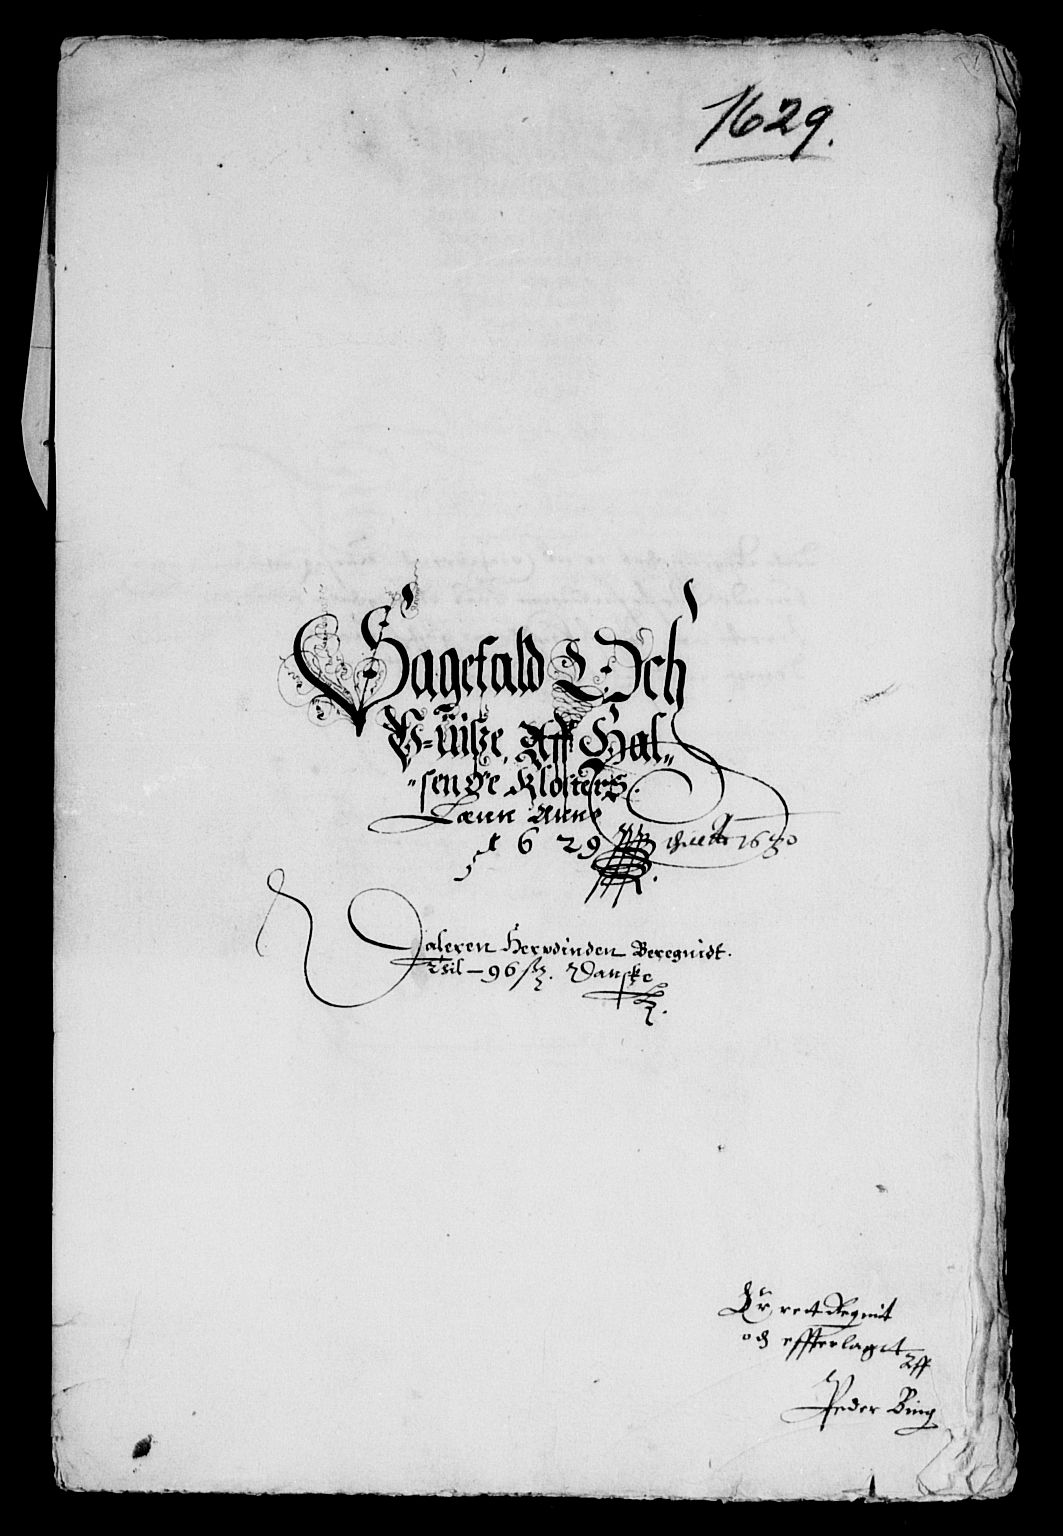 1629.
Sagefald Och
V-uisze, Aff Hal„
„senøe Klosters.
Lænn Anno
1629 1630
Daleren Herwdinden Beregnidt.
Til – 96 sz. Danske
Er ret Regnit
och effterlagt
Aff
Peder Bing